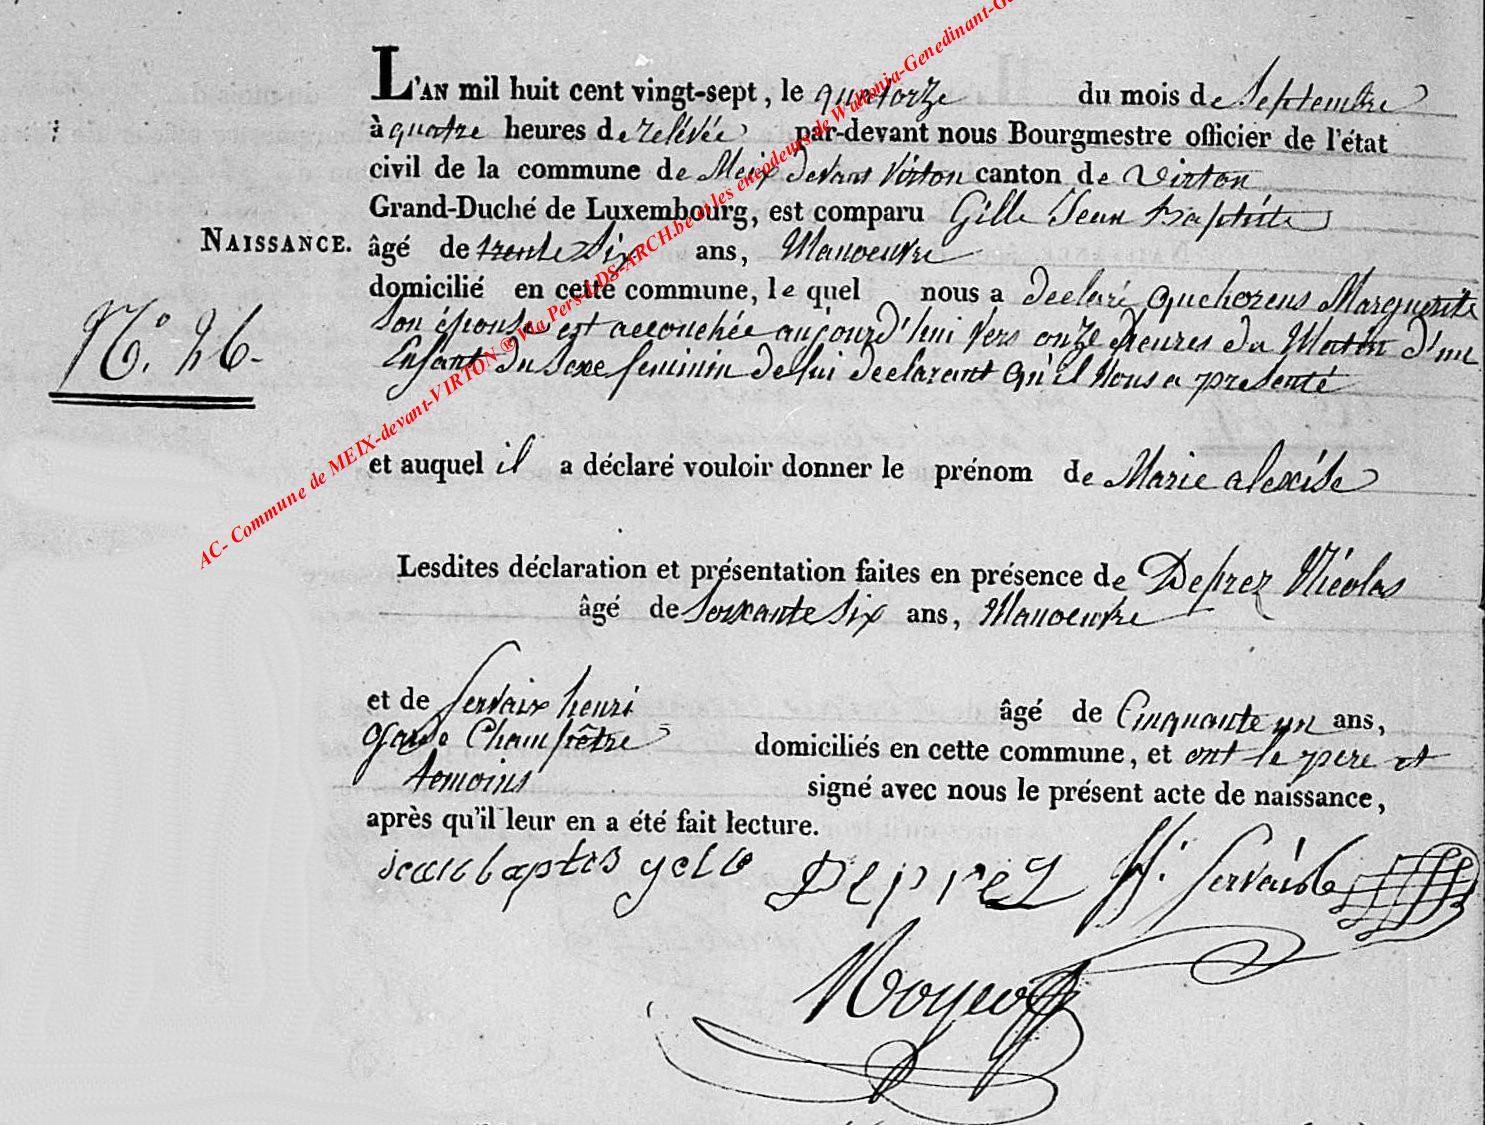 L'AN mil huit cent vingt-sept, le quatorze du mois de Septembre
à quatre heures de relévée par-devant nous Bourgmestre officier de l'état
civil de la commune de Meix devant Virton canton de Virton
Grand-Duché de Luxembourg, est comparu Gille Jean Baptiste
NAISSANCE. âgé de trente Six ans, Manoeuvre
domicilié en cette commune, le quel nous a declaré que horens Marguerite
N.° 26.
Son épouse est accouchée aujourd'hui Vers onze heures du Matin d'un
Enfant du Sexe feminin de lui declarant qu'il Nous a presenté
et auquel il a déclaré vouloir donner le prénom de Marie alexise
Lesdites déclaration et présentation faites en présence de Deprez Nicolas
âgé de Soixante Six ans, Manoeuvre
et de Servaix henri âgé de Cinquante un ans,
garde Champêtre domiciliés en cette commune, et ont le pere et
temoins signé avec nous le présent acte de naissance,
après qu'il leur en a été fait lecture.
jean baptis gele Deprez H. Servais
AC- Commune de MEIX-devant-VIRTON ® Via Pers-LDS-ARCH.be et les encodeurs de Wallonia-Genedinant-G